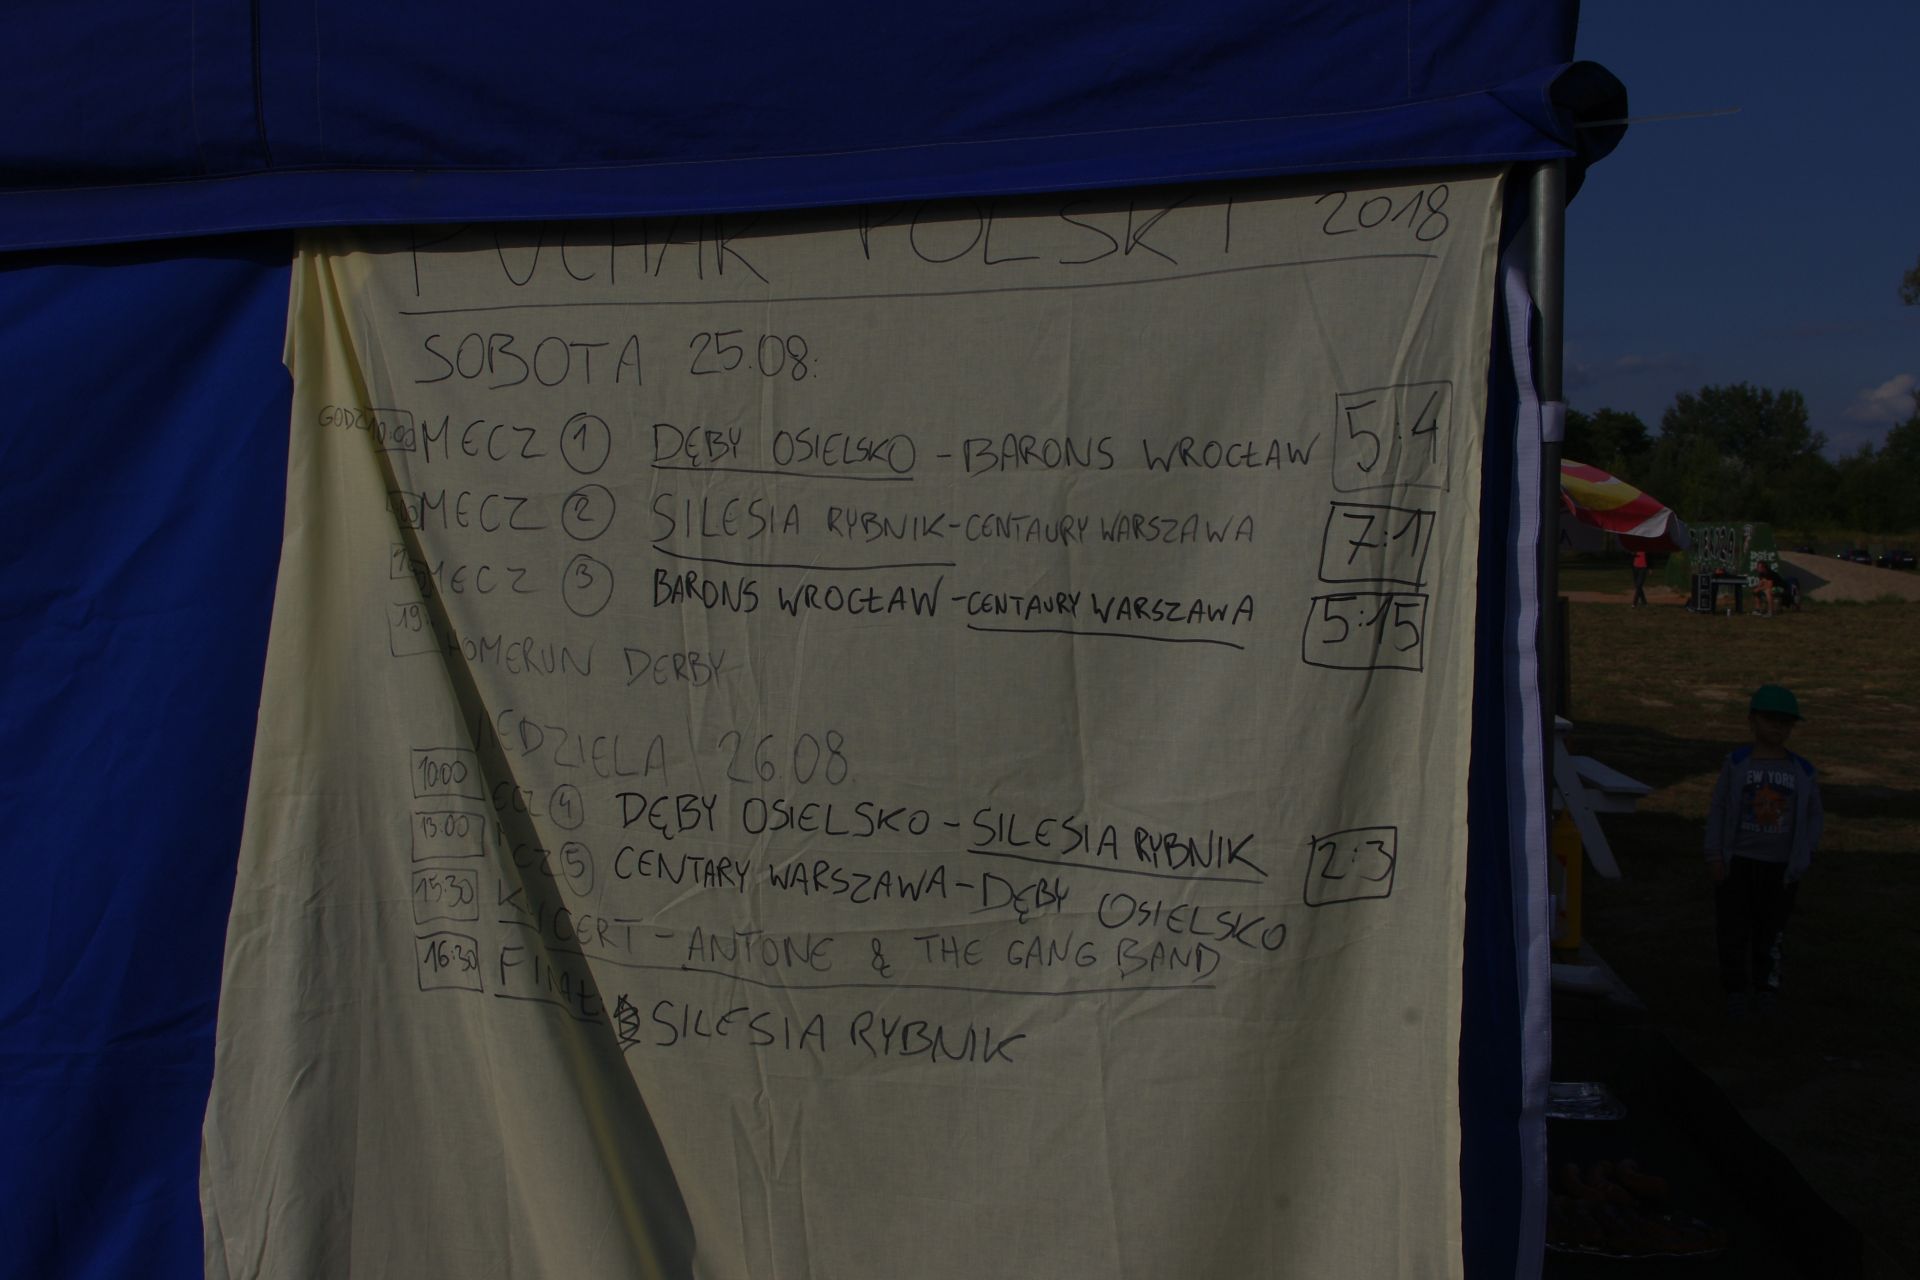 PUCHAR POLSKI 2018
SOBOTA 25.08:
GODZ 10:00 MECZ 1 DĘBY OSIELSKO - BARONS WROCŁAW 5:4
MECZ 2 SILESIA RYBNIK - CENTAURY WARSZAWA 7:1
MECZ 3 BARONS WROCŁAW - CENTAURY WARSZAWA 5:15
19: HOMERUN DERBY
NIEDZIELA 26.08.
10:00 MECZ 4 DĘBY OSIELSKO - SILESIA RYBNIK 2:3
13:00 MECZ 5 CENTARY WARSZAWA - DĘBY OSIELSKO
15:30 KONCERT - ANTONE & THE GANG BAND
16:30 FINAŁ: SILESIA RYBNIK
NEW YORK